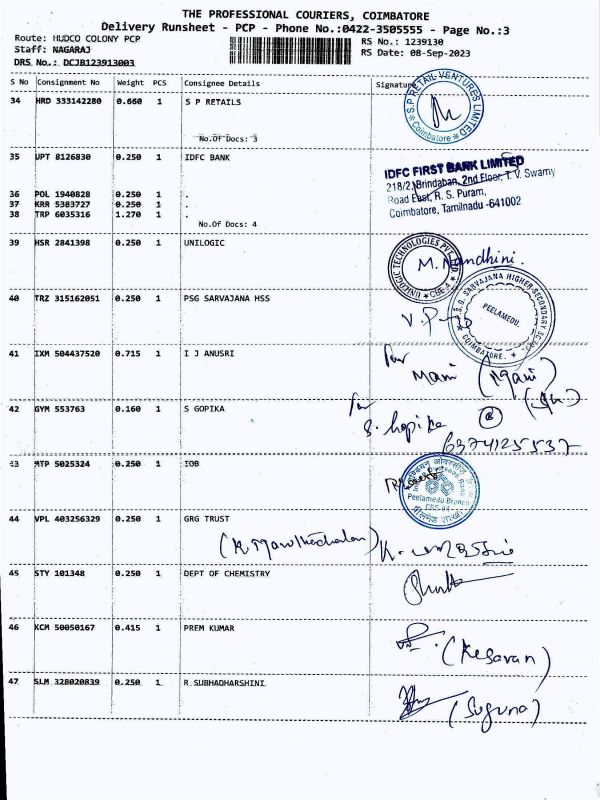 THE PROFESSIONAL COURIERS, COIMBATORE
Delivery Runsheet - PCP - Phone No.:0422-3505555 - Page No.:3
Route: HUDCO COLONY PCP
RS No.: 1239130
Staff: NAGARAJ
RS Date: 08-Sep-2023
DRS No.: DCJB123913003
S No Consignment No Weight PCS Consignee Details Signature
34 HRD 333142280 0.660 1 S P RETAILS
S.P RETAIL VENTURES LIMITED
Coimbatore
No.Of Docs: 3
35 UPT 8126830 0.250 1 IDFC BANK
IDFC FIRST BANK LIMITED
218/2, Brindaban, 2nd Floor, T.V. Swamy
Road East, R. S. Puram,
Coimbatore, Tamilnadu -641002
36 POL 1940828 0.250 1 .
37 KRR 5383727 0.250 1 .
38 TRP 6035316 1.270 1 .
No.Of Docs: 4
39 HSR 2841398 0.250 1 UNILOGIC
UNILOGIC TECHNOLOGIES PVT LTD
CBE-4
M. Nandhini.
40 TRZ 315162051 0.250 1 PSG SARVAJANA HSS
P.S.G. SARVAJANA HIGHER SECONDARY SCHOOL
PEELAMEDU.
COIMBATORE.
41 IXM 504437520 0.715 1 I J ANUSRI
for
Mani (Mani)
42 GYM 553763 0.160 1 S GOPIKA
for
S. hopika
6374125537
43 MTP 5025324 0.250 1 IOB
Peelamedu Branch
CBS-04
44 VPL 403256329 0.250 1 GRG TRUST
45 STY 101348 0.250 1 DEPT OF CHEMISTRY
46 KCM 50050167 0.415 1 PREM KUMAR
(Kesavan)
47 SLM 328020839 0.250 1 R.SUBHADHARSHINI
(Suguna)